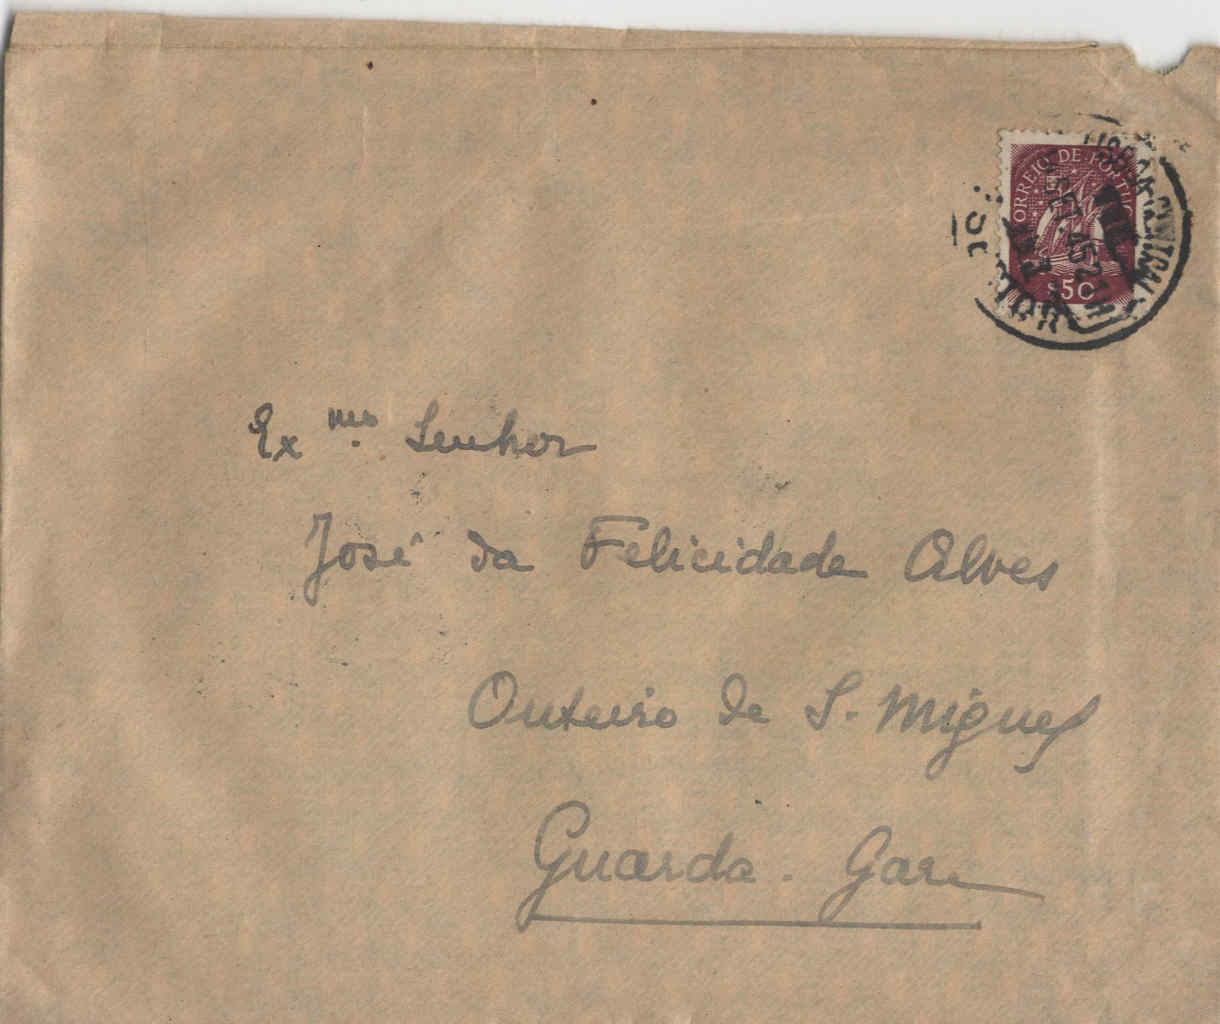 CORREIO DE PORTUGAL
$50
LISBOA CENTRAL
45
Ex.mo Senhor
José da Felicidade Alves
Outeiro de S. Miguel
Guarda. Gare